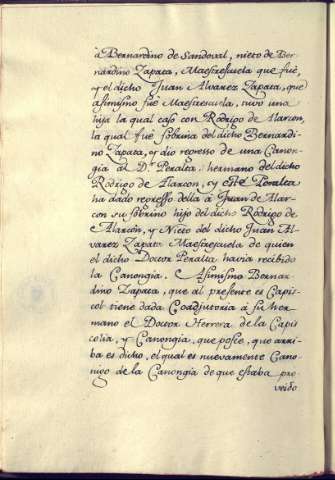 à Bernardino de Sandoval, nieto de Ber-
nardino Zapata, Maestrescuela que fuè,
y el dicho Juan Alvarez Zapata, que
asimismo fuè Maestrescuela, tuvo una
hija la qual casò con Rodrigo de Alarcon,
la qual fuè sobrina del dicho Bernardi-
no Zapata, y dio regresso de una Canon-
gia al D.r Peralta, hermano del dicho
Rodrigo de Alarcon, y este Peralta
ha dado regresso della à Juan de Alar-
con su sobrino hijo del dicho Rodrigo de
Alarcòn, y Nieto del dicho Juan Al-
varez Zapata Maestrescuela de quien
el dicho Doctor Peralta havia recibido
la Canongia. Asimismo Bernar-
dino Zapata, que al presente es Capis-
col tiene dada Coadjutoria à su her-
mano el Doctor Herrera de la Capis-
colia, y Canongia, que posee, que arri-
ba es dicho, el qual es nuevamente Cano-
nigo de la Canongia de que estaba pro-
veido